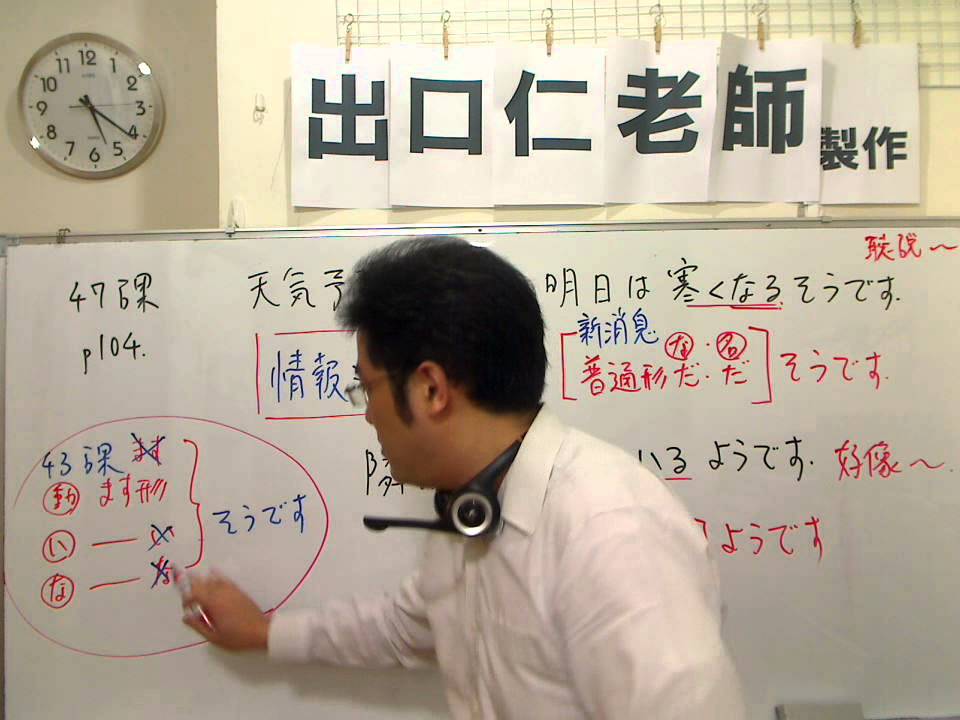 出口仁老師製作
12 1 2 3 4 5 6 7 8 9 10 11
聽說〜
47課 天気予 明日は寒くなるそうです.
p104.
新消息
情報
[普通形 なだ・名だ] そうです.
43課 ます
動 ます形
い — い
な — な
そうです
隣 いる ようです. 好像〜.
ようです